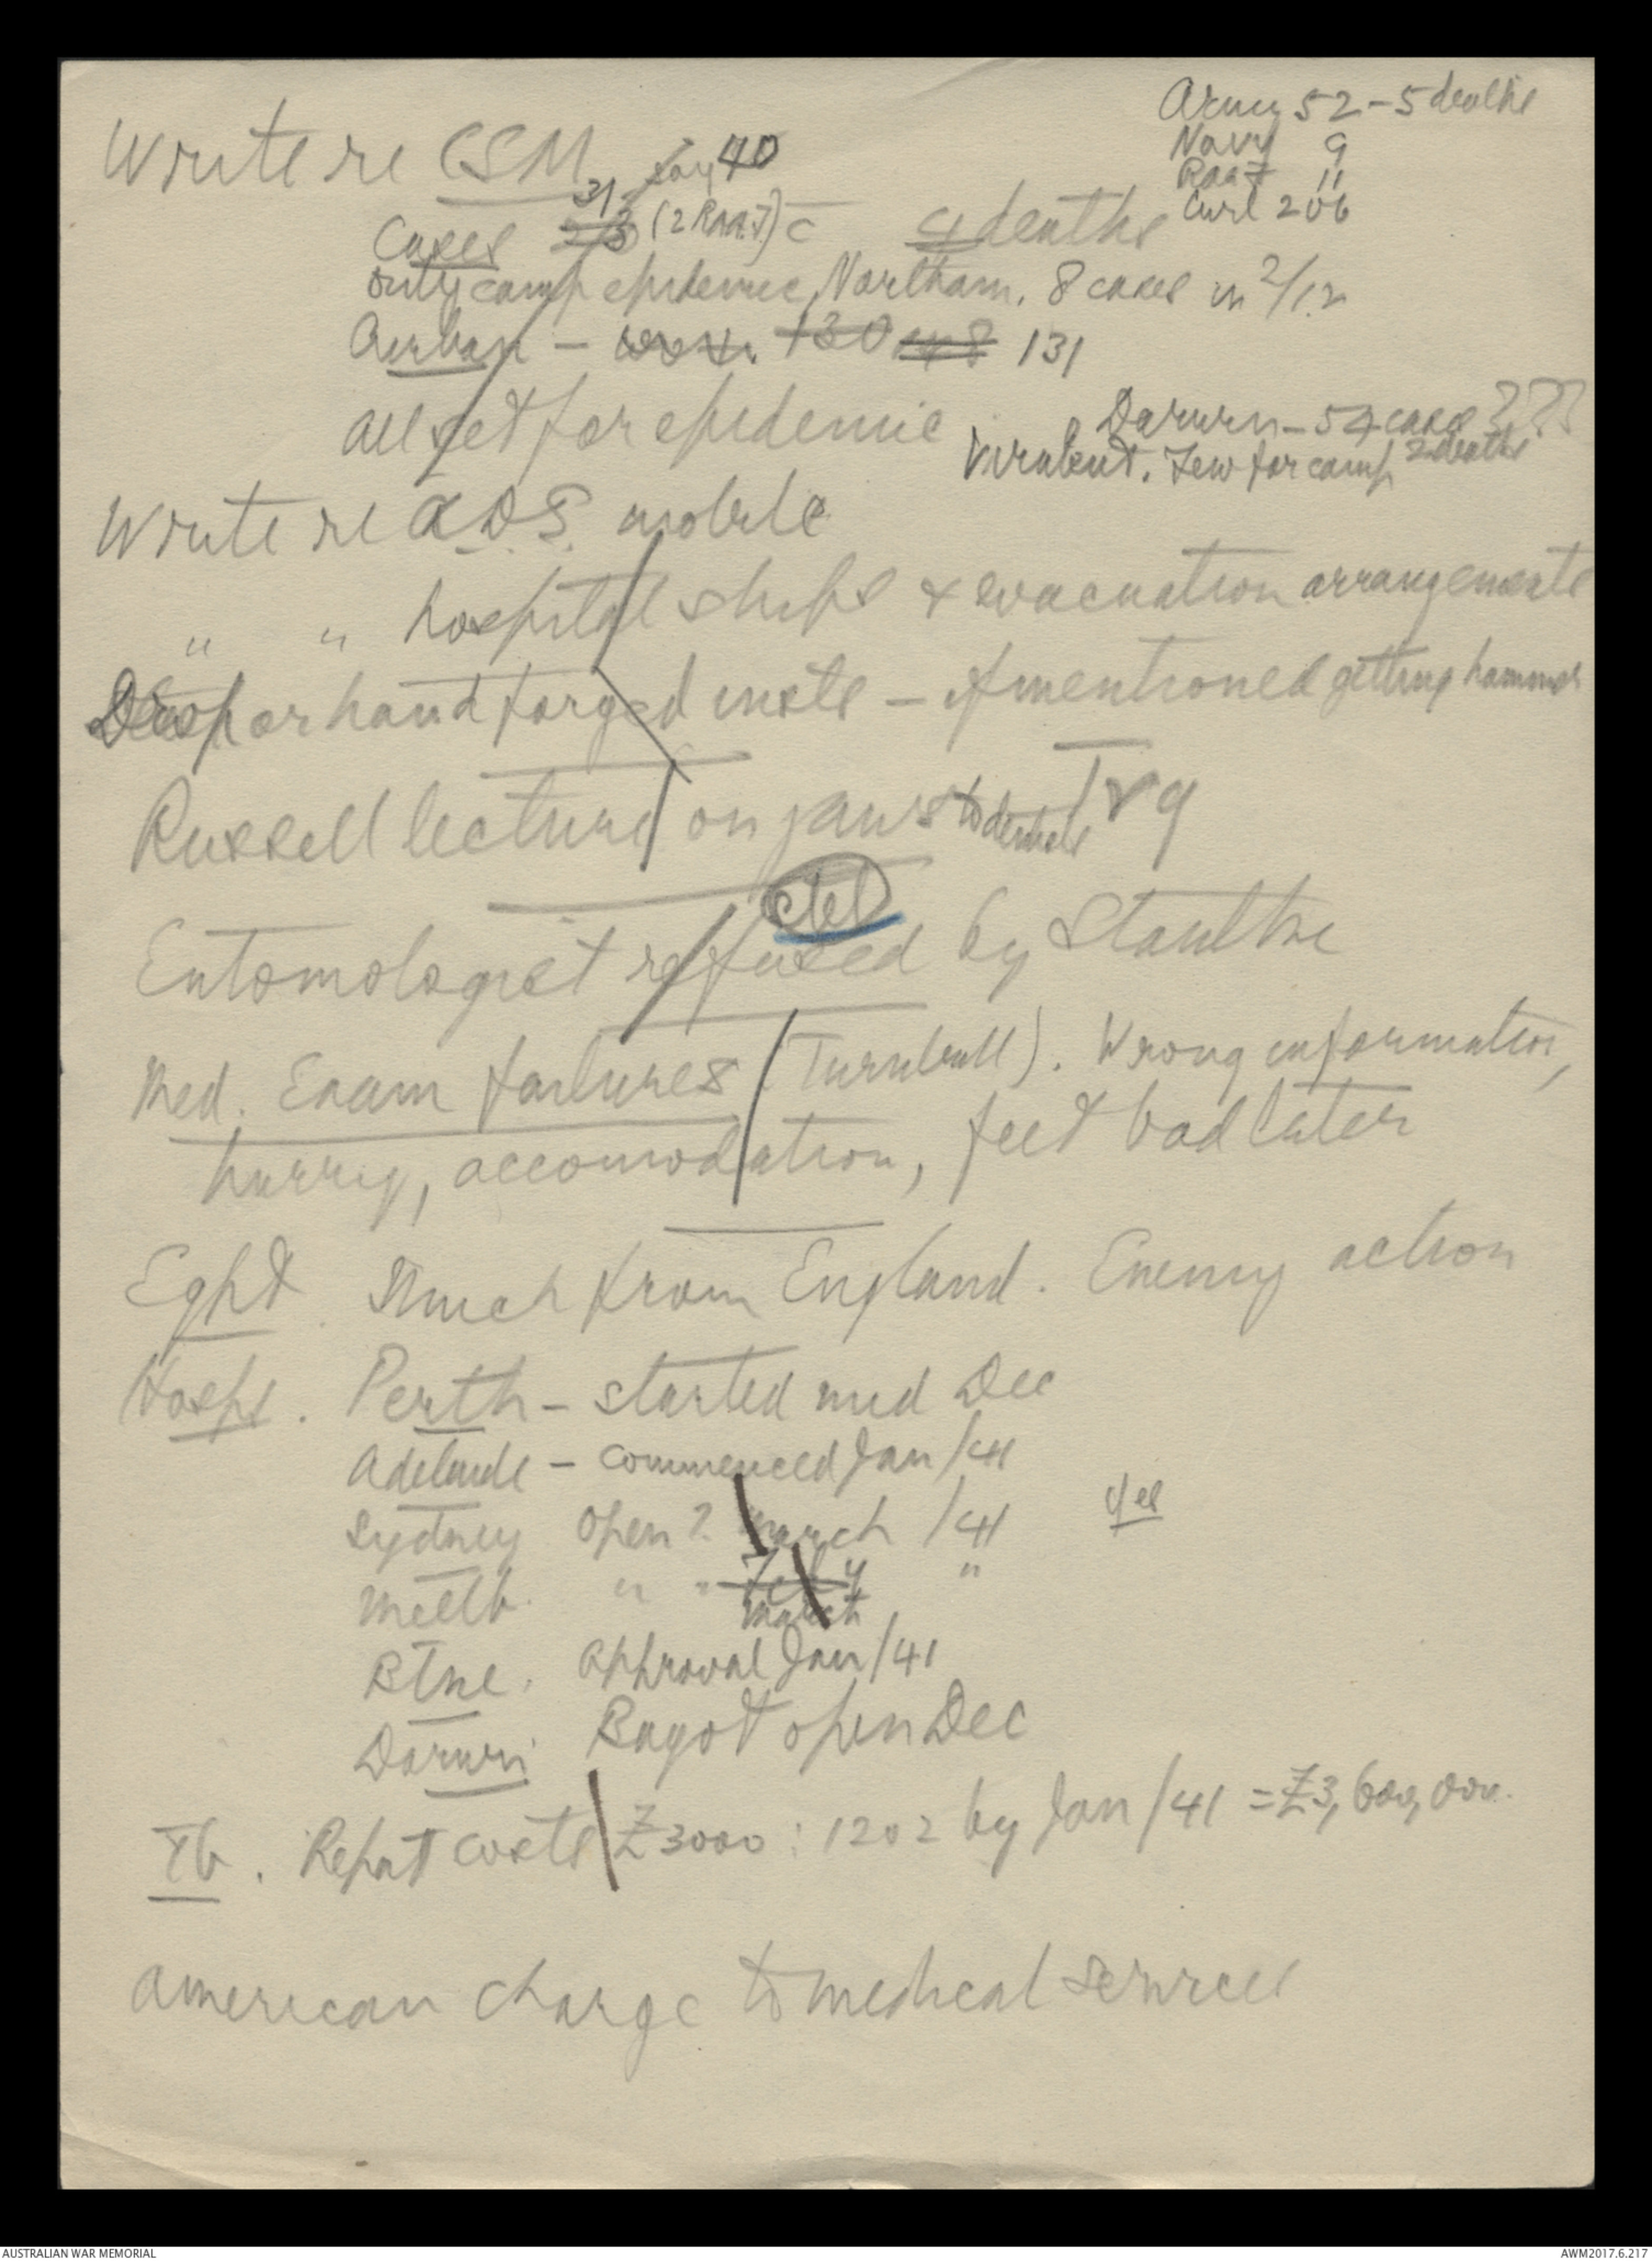 Army 52 - 5 deaths
Navy 9
RAAF 11
Civil 206
Write re CSM Jan 40
Cases 31 (2 RAAF) c 4 deaths
Only camp epidemic, Northam. 8 cases in 2/12
- 130 131
All set for epidemic
Darwin - 54 cases ???
Virulent. Few for camp 2 deaths
Write re A.D.S. mobile
" " hospital ships & evacuation arrangements
or hand forged insts - if mentioned getting hammer
Russell lecture on jaws to dentals Trg
Entomologist refused by Stantke
Med. Exam failures (Turnbull). Wrong information,
hurry, accomodation, feet bad later
Eqpt. Much from England. Enemy action
Hosps. Perth - started mid Dec
Adelaide - commenced Jan/41
Sydney Open? March /41 Yes
Melb. " " Feby "
March
Btne. Approval Jan/41
Darwin Bagot open Dec
Tb. Repat costs £3000 : 1202 by Jan/41 = £3,600,000.
American charge to medical services
AUSTRALIAN WAR MEMORIAL
AWM2017.6.217